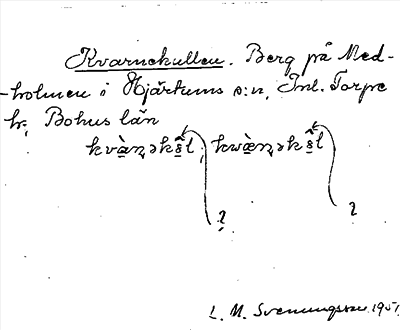 Kvarnekullen. Berg på Med-
-holmen i Hjärtums s:n, Inl. Torpe
hr, Bohus län
kvànəks̊l, kwànəks̊l
? ?
L. M. Svenungsson 1951